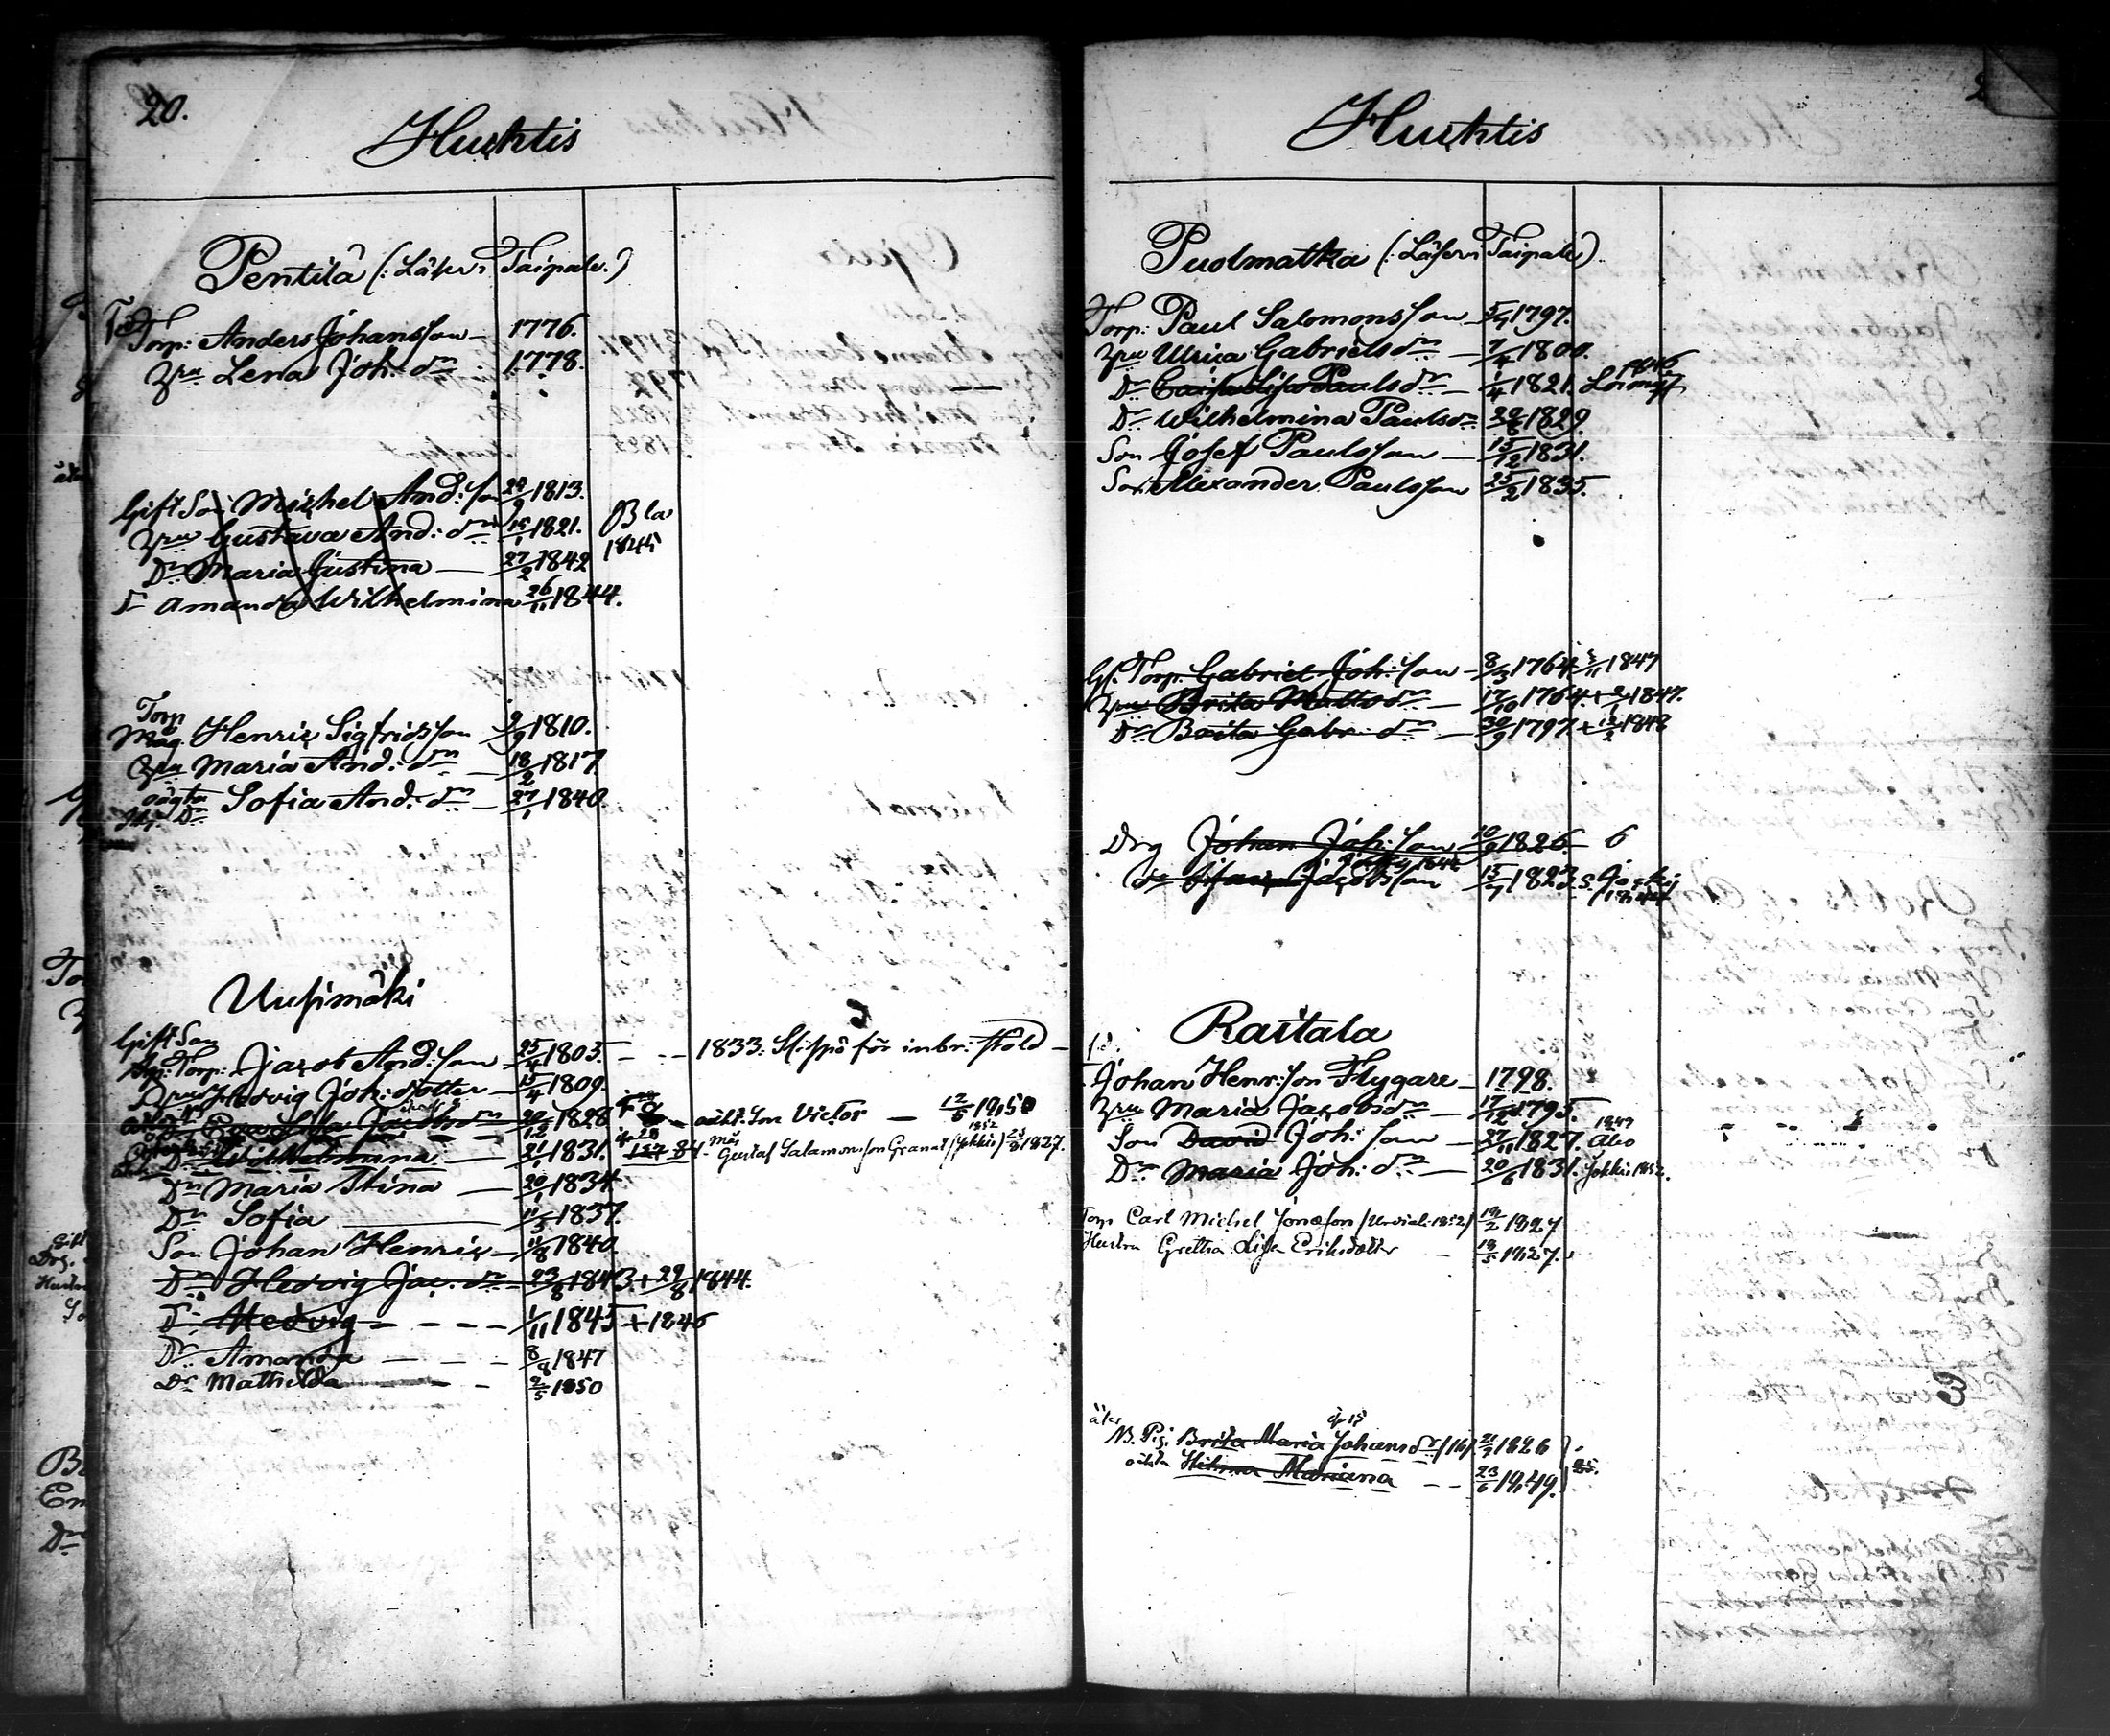 20.
Huhtis
Pentilä (: Läser i Taipale:)
Torp: Anders Johansson 1776.
Hru Lena Joh: dr 1778.
Gift Son Michel And: son 29/9 1813.
Hru Gustava And: dr 15/1 1821. Bla
Dr Maria Justina 27/2 1842 1845
Dr Amanda Wilhelmina 26/11 1844.
Torp
Måg. Henric Sigfridsson 9/9 1810.
Hru Maria And: dr 18/2 1817
oägta
Dr Sofia And: dr 27/1 1840.
Uusimäki
Gift Son
Torp: Jacob And: son 25/4 1803. 1833. Slispö för inbr: stöld
Hru Hedvig Joh: dotter 15/4 1809.
Jacobs dr 20/12 1828 äkt. Son Victor 12/5 1850
1852
Dr Wilhelmina 21/1 1831. Måg Gustaf Salamonsson Granat (Jokkis) 23/8 1827.
Dr Maria Stina 20/1 1834
Dr Sofia 11/5 1837.
Son Johan Henric 11/8 1840.
Dr Hedvig Jac: dr 23/8 1843 + 29/8 1844.
Dr Hedvig 1/11 1845 + 1846
Dr Amanda 8/8 1847
Dr Mathilda 2/5 1850
Huhtis
Puolmatka (: Läser i Taipale)
Torp: Paul Salomonsson 5/7 1797.
Hru Ulrica Gabriels dr 7/4 1800.
1846
Dr Caisa Lisa Pauls dr 1/4 1821.
Dr Wilhelmina Pauls dr 1829.
Son Josef Paulsson 15/12 1831.
Son Alexander Paulsson 25/2 1835.
Gl. Torp. Gabriel Joh: son 8/3 1764 1847
Hru Brita Matts dr 17/10 1764 + 1847.
Dr Brita Gabr: dr 30/9 1797 + 1848
Drg Johan Joh: son 10/9 1826 6
Jacobsson 15/7 1823
Raitala
Johan Henr: son Flygare 1798.
Hru Maria Jacobs dr 17/12 1795.
1847
Son David Joh: son 27/11 1827. Åbo
Dr Maria Joh: dr 20/6 1831. Jokkis 1852.
Torp Carl Michel Jonasson (Urdiala 1852) 19/2 1827
Hustru Gretha Lisa Eriksdotter 18/5 1827.
N. Pig. Brita Maria Johans dr 1826
oäkta Hilma Mariana 23/6 1849.